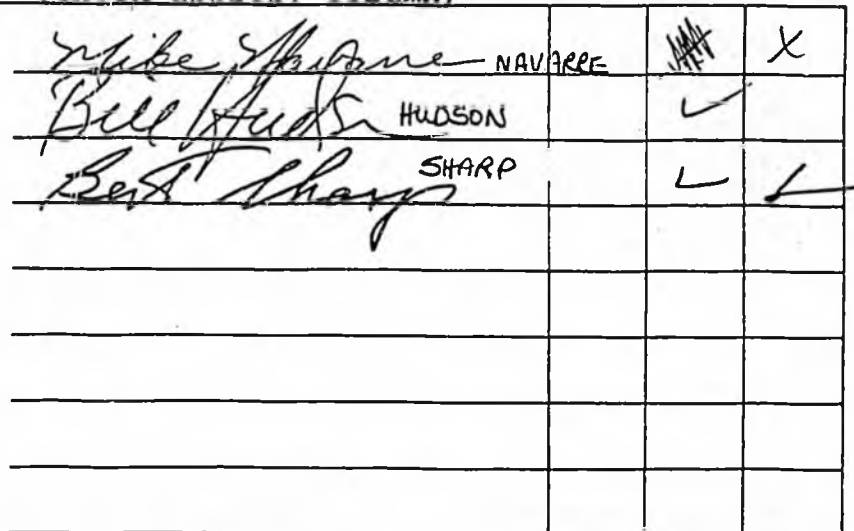 Mike Navarre NAVARRE X
Bill Hudson HUDSON ✓
Bert Sharp SHARP ✓ ✓